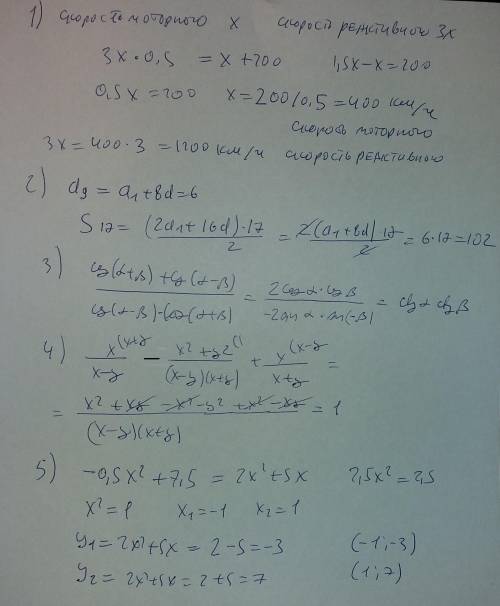 1) скорость моторного x скорость реактивного 3x
3x·0,5 = x+200 1,5x-x=200
0,5x=200 x=200/0,5=400 км/ч
скорость моторного
3x=400·3=1200 км/ч скорость реактивного
2) a₉=a₁+8d=6
S₁₇= (2a₁+16d)·17/2 = 2(a₁+8d)17/2 = 6·17=102
3) (cos(α+β)+cos(α-β))/(cos(α-β)-cos(α+β)) = (2cosα·cosβ)/(-2sinα·sin(-β)) = ctgα ctgβ
4) x^(x+y/(x-y) - (x²+y2^(1)/((x-y)(x+y)) + x^(x-y/(x+y) =
= (x²+xy-x²-y²+x²-xy)/((x-y)(x+y)) = 1
5) -0,5x²+7,5=2x²+5x 2,5x²=2,5
x²=1 x₁=-1 x₂=1
y₁=2x²+5x=2-5=-3 (-1;-3)
y₂=2x²+5x=2+5=7 (1;7)